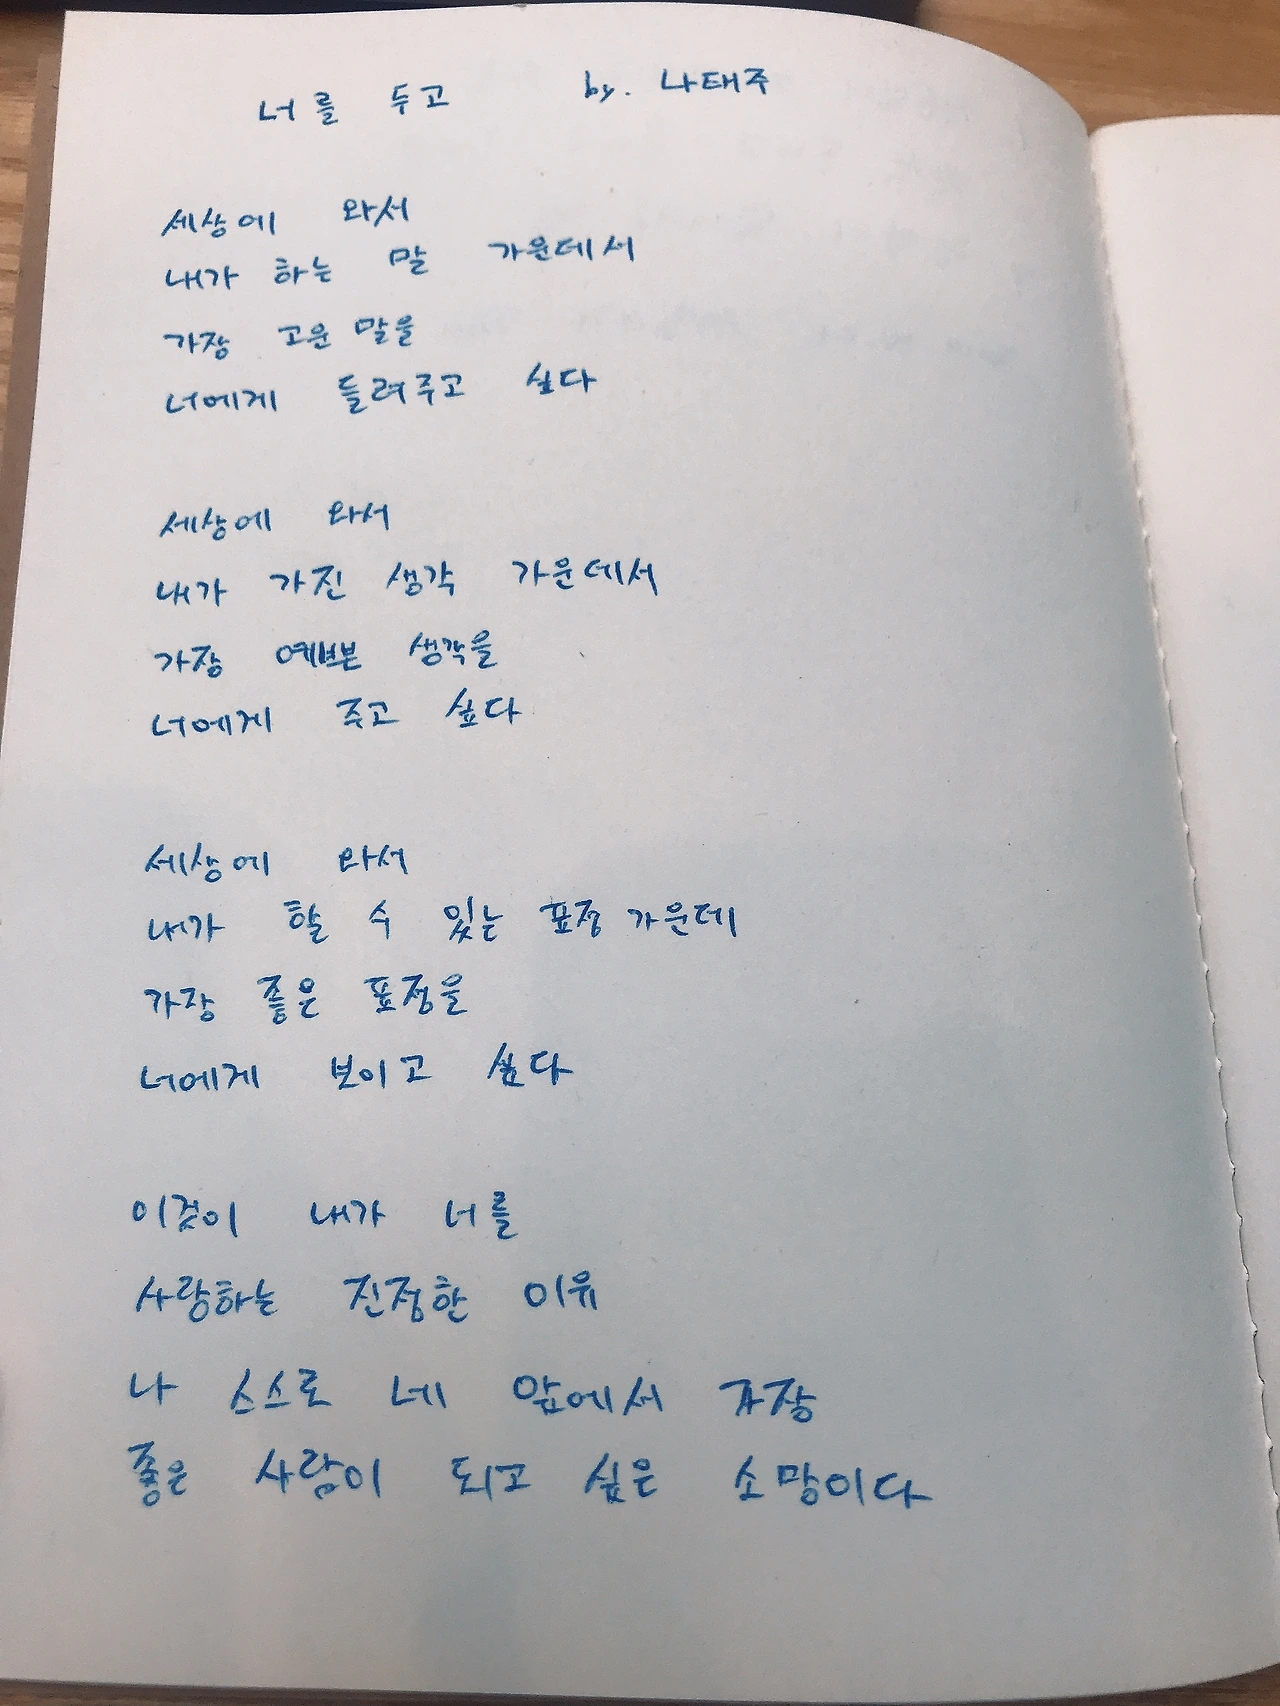 너를 두고 by. 나태주
세상에 와서
내가 하는 말 가운데서
가장 고운 말을
너에게 들려주고 싶다
세상에 와서
내가 가진 생각 가운데서
가장 예쁜 생각을
너에게 주고 싶다
세상에 와서
내가 할 수 있는 표정 가운데
가장 좋은 표정을
너에게 보이고 싶다
이것이 내가 너를
사랑하는 진정한 이유
나 스스로 네 앞에서 가장
좋은 사람이 되고 싶은 소망이다